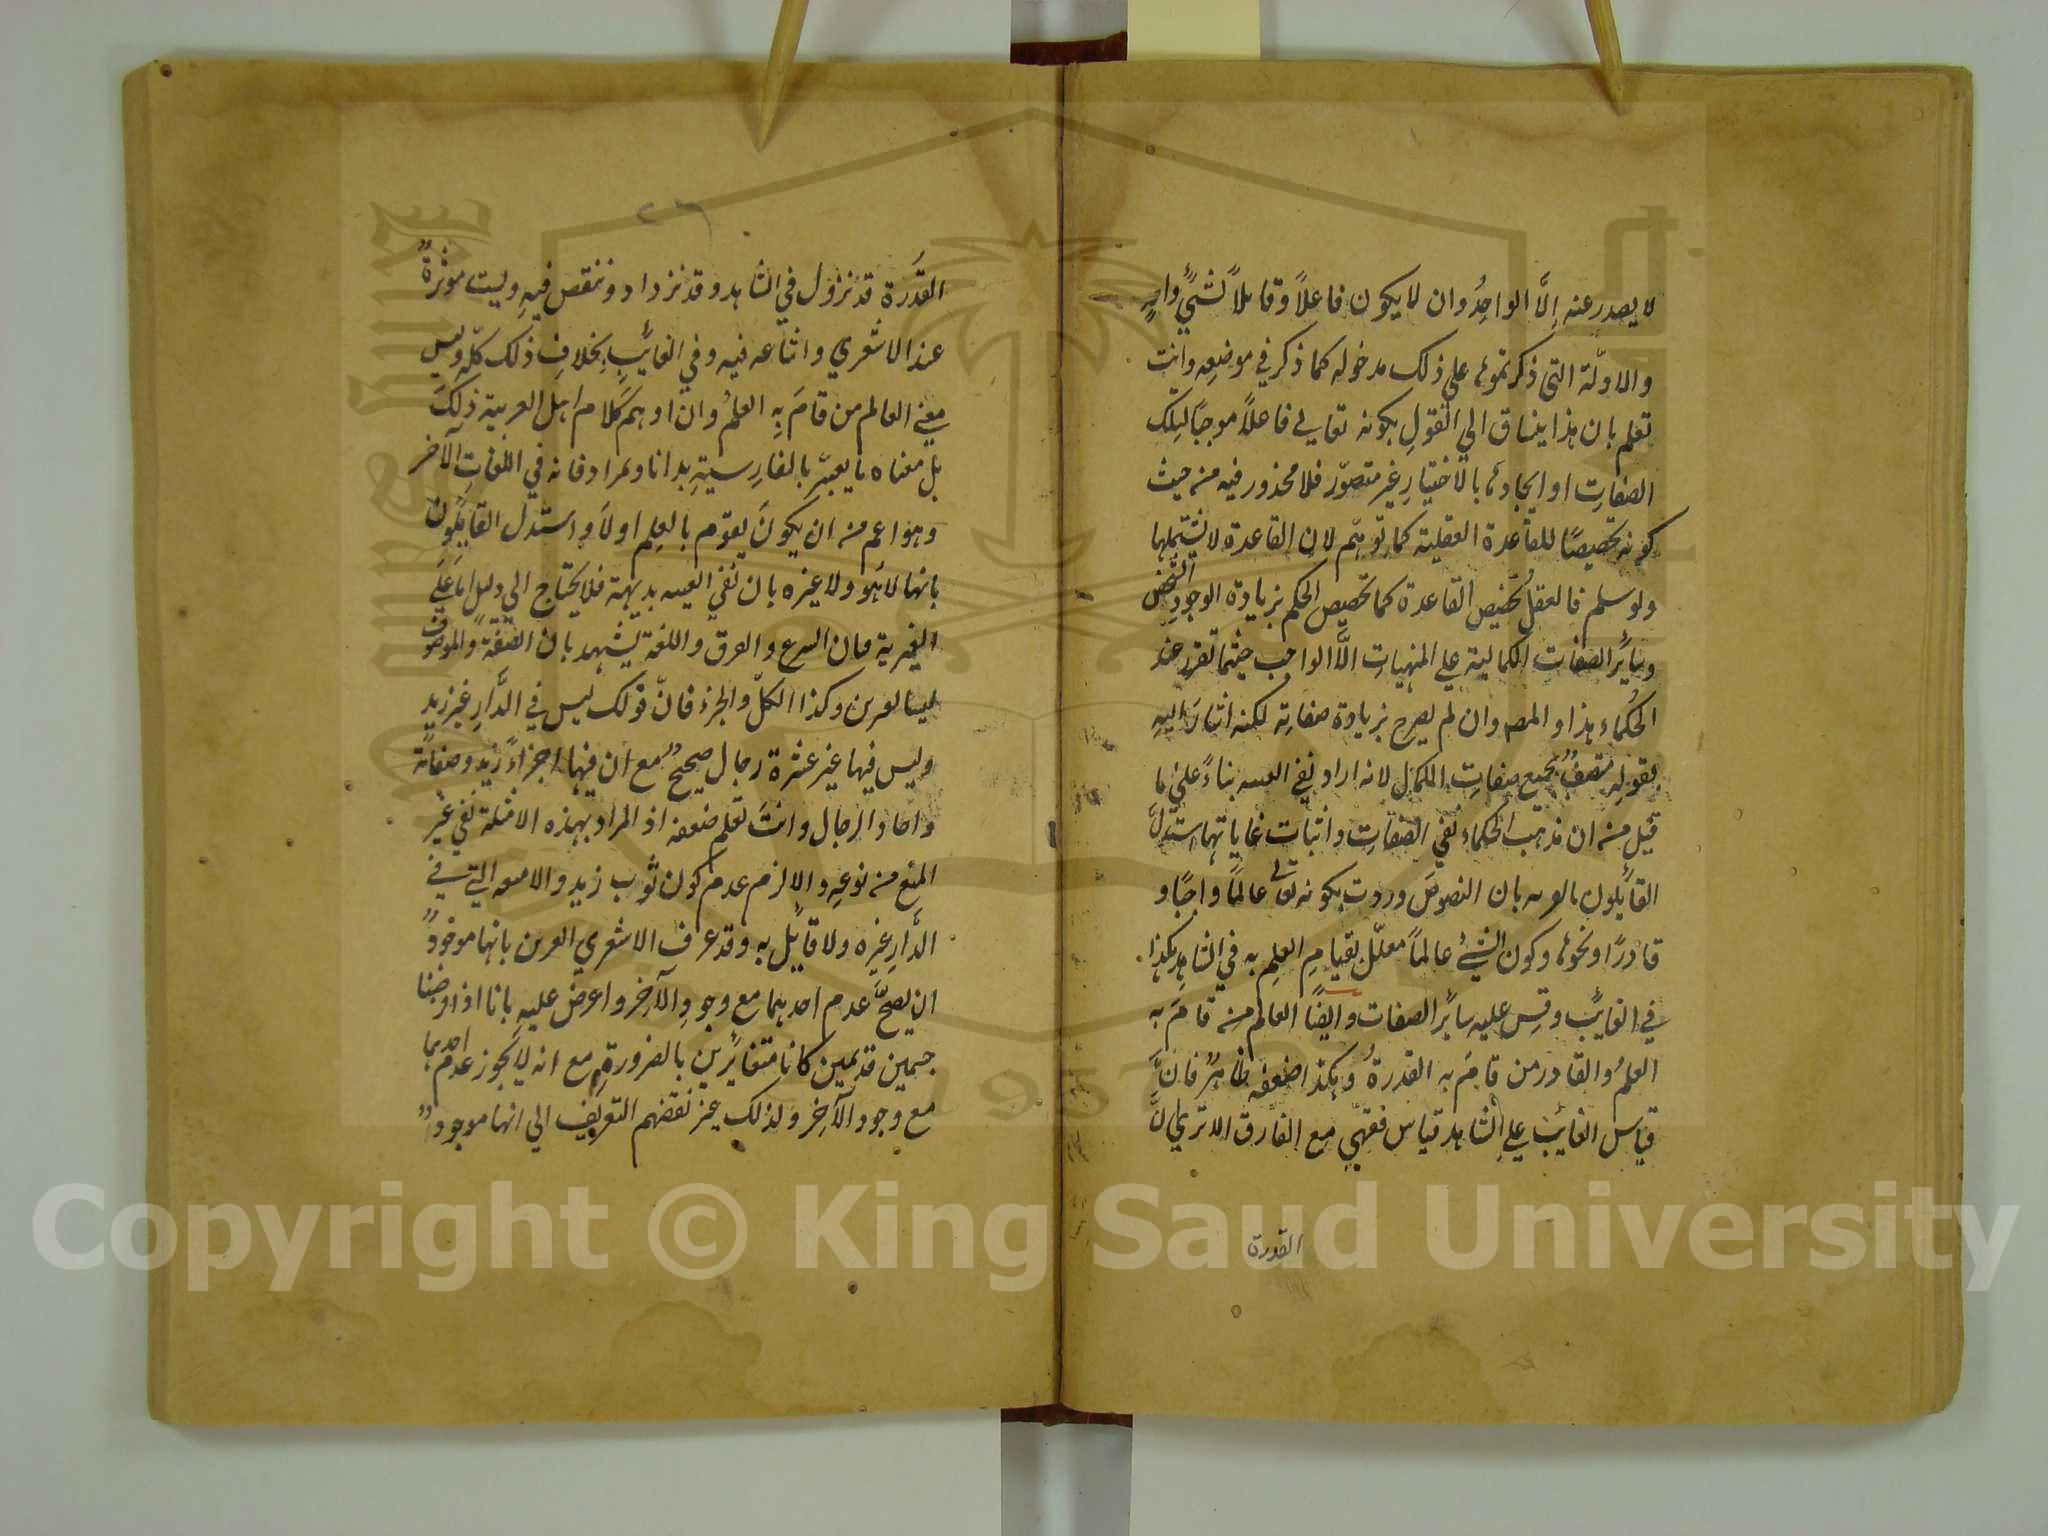 لا يصدر عنه الَّا الواحِدُ وان لا يكون فاعلاً وقابلاً لشيٍ واحدٍ
والادلّة التى ذكرتموها على ذلك مدخوله كما ذكر في موضعِه وانت
تعلم بان هذا ينساق الي القولِ بكونه تعالى فاعلاً موجبًا لتلك
الصفاتِ او ايجادها بالاختيارِ غير متصوّر فلا محذور فيه من حيث
كونه تخصيصًا للقاعدة العقلية كما توهّم لان القاعدة لا تشتملها
ولو سلم فالعقلُ تخصيص القاعدة كما تخصيص الحكم بزيادة الوجودِ
وسائر الصفات الكمالية علي المهيات الَّا الواجب حيثما تقرر عند
الحكماء هذا والمصـ وان لم يصرح بزيادة صفاتِه لكنه اشار اليهِ
بقولِه متصفٌ بجميع صفاتِ الكمال لانه اراد نفي العينيه بناءً على ما
قيل من ان مذهب الحكماء نفي الصفاتِ واثبات غاياتها استدلَّ
القائلون بالغيريه بان النصوصَ وردت بكونه تعالى عالمًا واجبًا و
قادرًا ونحوها وكون الشيْءِ عالماً معلّل بقيامِ العلمِ به في الشاهدِ فكذا
في الغائبِ وقِس عليه سائر الصفات وايضًا العالم من قامَ به
العلمُ والقادر من قامَ به القدرةُ وهكذا ضعفه ظاهرٌ فانَّ
قياس الغائب علي الشاهد قياس فقهيّ مع الفارق الا تري انَّ
القدرة
٢٦
القُدرة قد تزول في الشاهد وقد تزداد وتنقص فيهِ وليست موثرةً
عند الاشعري واتباعه فيه وفي الغائبِ بخلافِ ذلك كلّه وليس
معني العالم من قامَ بِه العلمُ وان اوهم كلام اهل العربية ذلكَ
بل معناه ما يعبّر بالفارِسيةِ بدانا وبمرادفاته في اللغاتِ الآخر
وهو اعم من ان يكونَ يقوم بالعلِم اولَا واستدل القايلون
بانها لا هُو ولا غيره بان نفي العينيه بديهة فلا يحتاج الي دليل اما عَلَي
الغيرية فان الشرع والعرق واللغة يشهد بان الصّفة والموصوف
ليسا لغيرين وكذا الكلّ والجزء فانّ قولك ليس في الدَّارِ غير زيد
وليس فيها غير عشرة رجال صحيحٌ مع ان فيها اجزاءَ زيد وصفاته
واحاد الرجال وانتَ تعلم ضعفه اذ المراد بهذه الامثلة نفي غير
المنع من نوعِه والا لزم عدم كون ثوب زيد والامتعه التي في
الدَّارِ غيره ولا قائل به وقد عرف الاشعري الغيرين بانها موجودٌ
ان يصحَّ عدم احدهما مع وجودِ الآخِر واعرض عليهِ بانا اذا فرضنا
جسمين قديمين كانا متغائرين بالضرورةِ مع انه لا يجوز عدم احدهما
مع وجود الآخِر ولذلك غير نقضهم التعريف الي انها موجودٌ
Copyright © King Saud University
1957